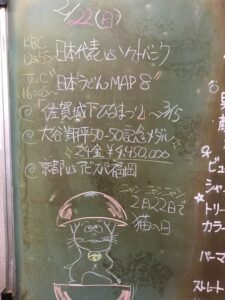 2/22(日)
KBC
12:55〜 日本代表 vs ソフトバンク
16:05〜 "日本うどんMAP8"
◎「佐賀城下ひなまつり」〜3/15
◎大谷翔平50-50記念メダル
24金 ¥4,450,000
◎京都 vs アビスパ福岡
ニャン ニャン ニャン
2月22日で
猫の日
男
ビュ
シャ
トリー
カラー
パーマ
ストレート